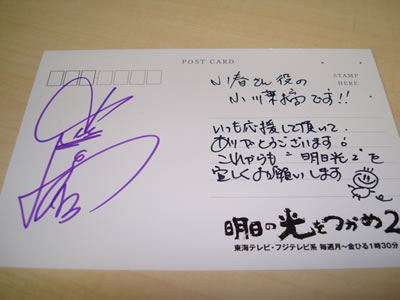 POST CARD
STAMP
HERE
小春さん役の
小川菜摘です!!
いつも応援して頂いて
ありがとうございます!
これからも"明日光2"を
宜しくお願いします
明日の光をつかめ2
東海テレビ・フジテレビ系 毎週月〜金ひる1時30分